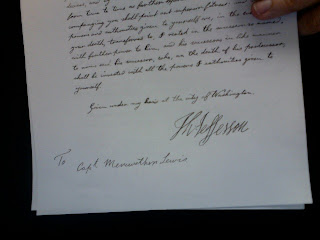 from time to time
accompanying you shall find and
powers and authorities given to yourself are, in the event of
your death, transferred to & vested in the successor so named,
with further power to him, and his successors in like manner
to name each his successor, who, on the death of his predecessor,
shall be invested with all the powers & authorities given to
yourself.
Given under my hand at the city of Washington
Th Jefferson
To Capt Meriwether Lewis